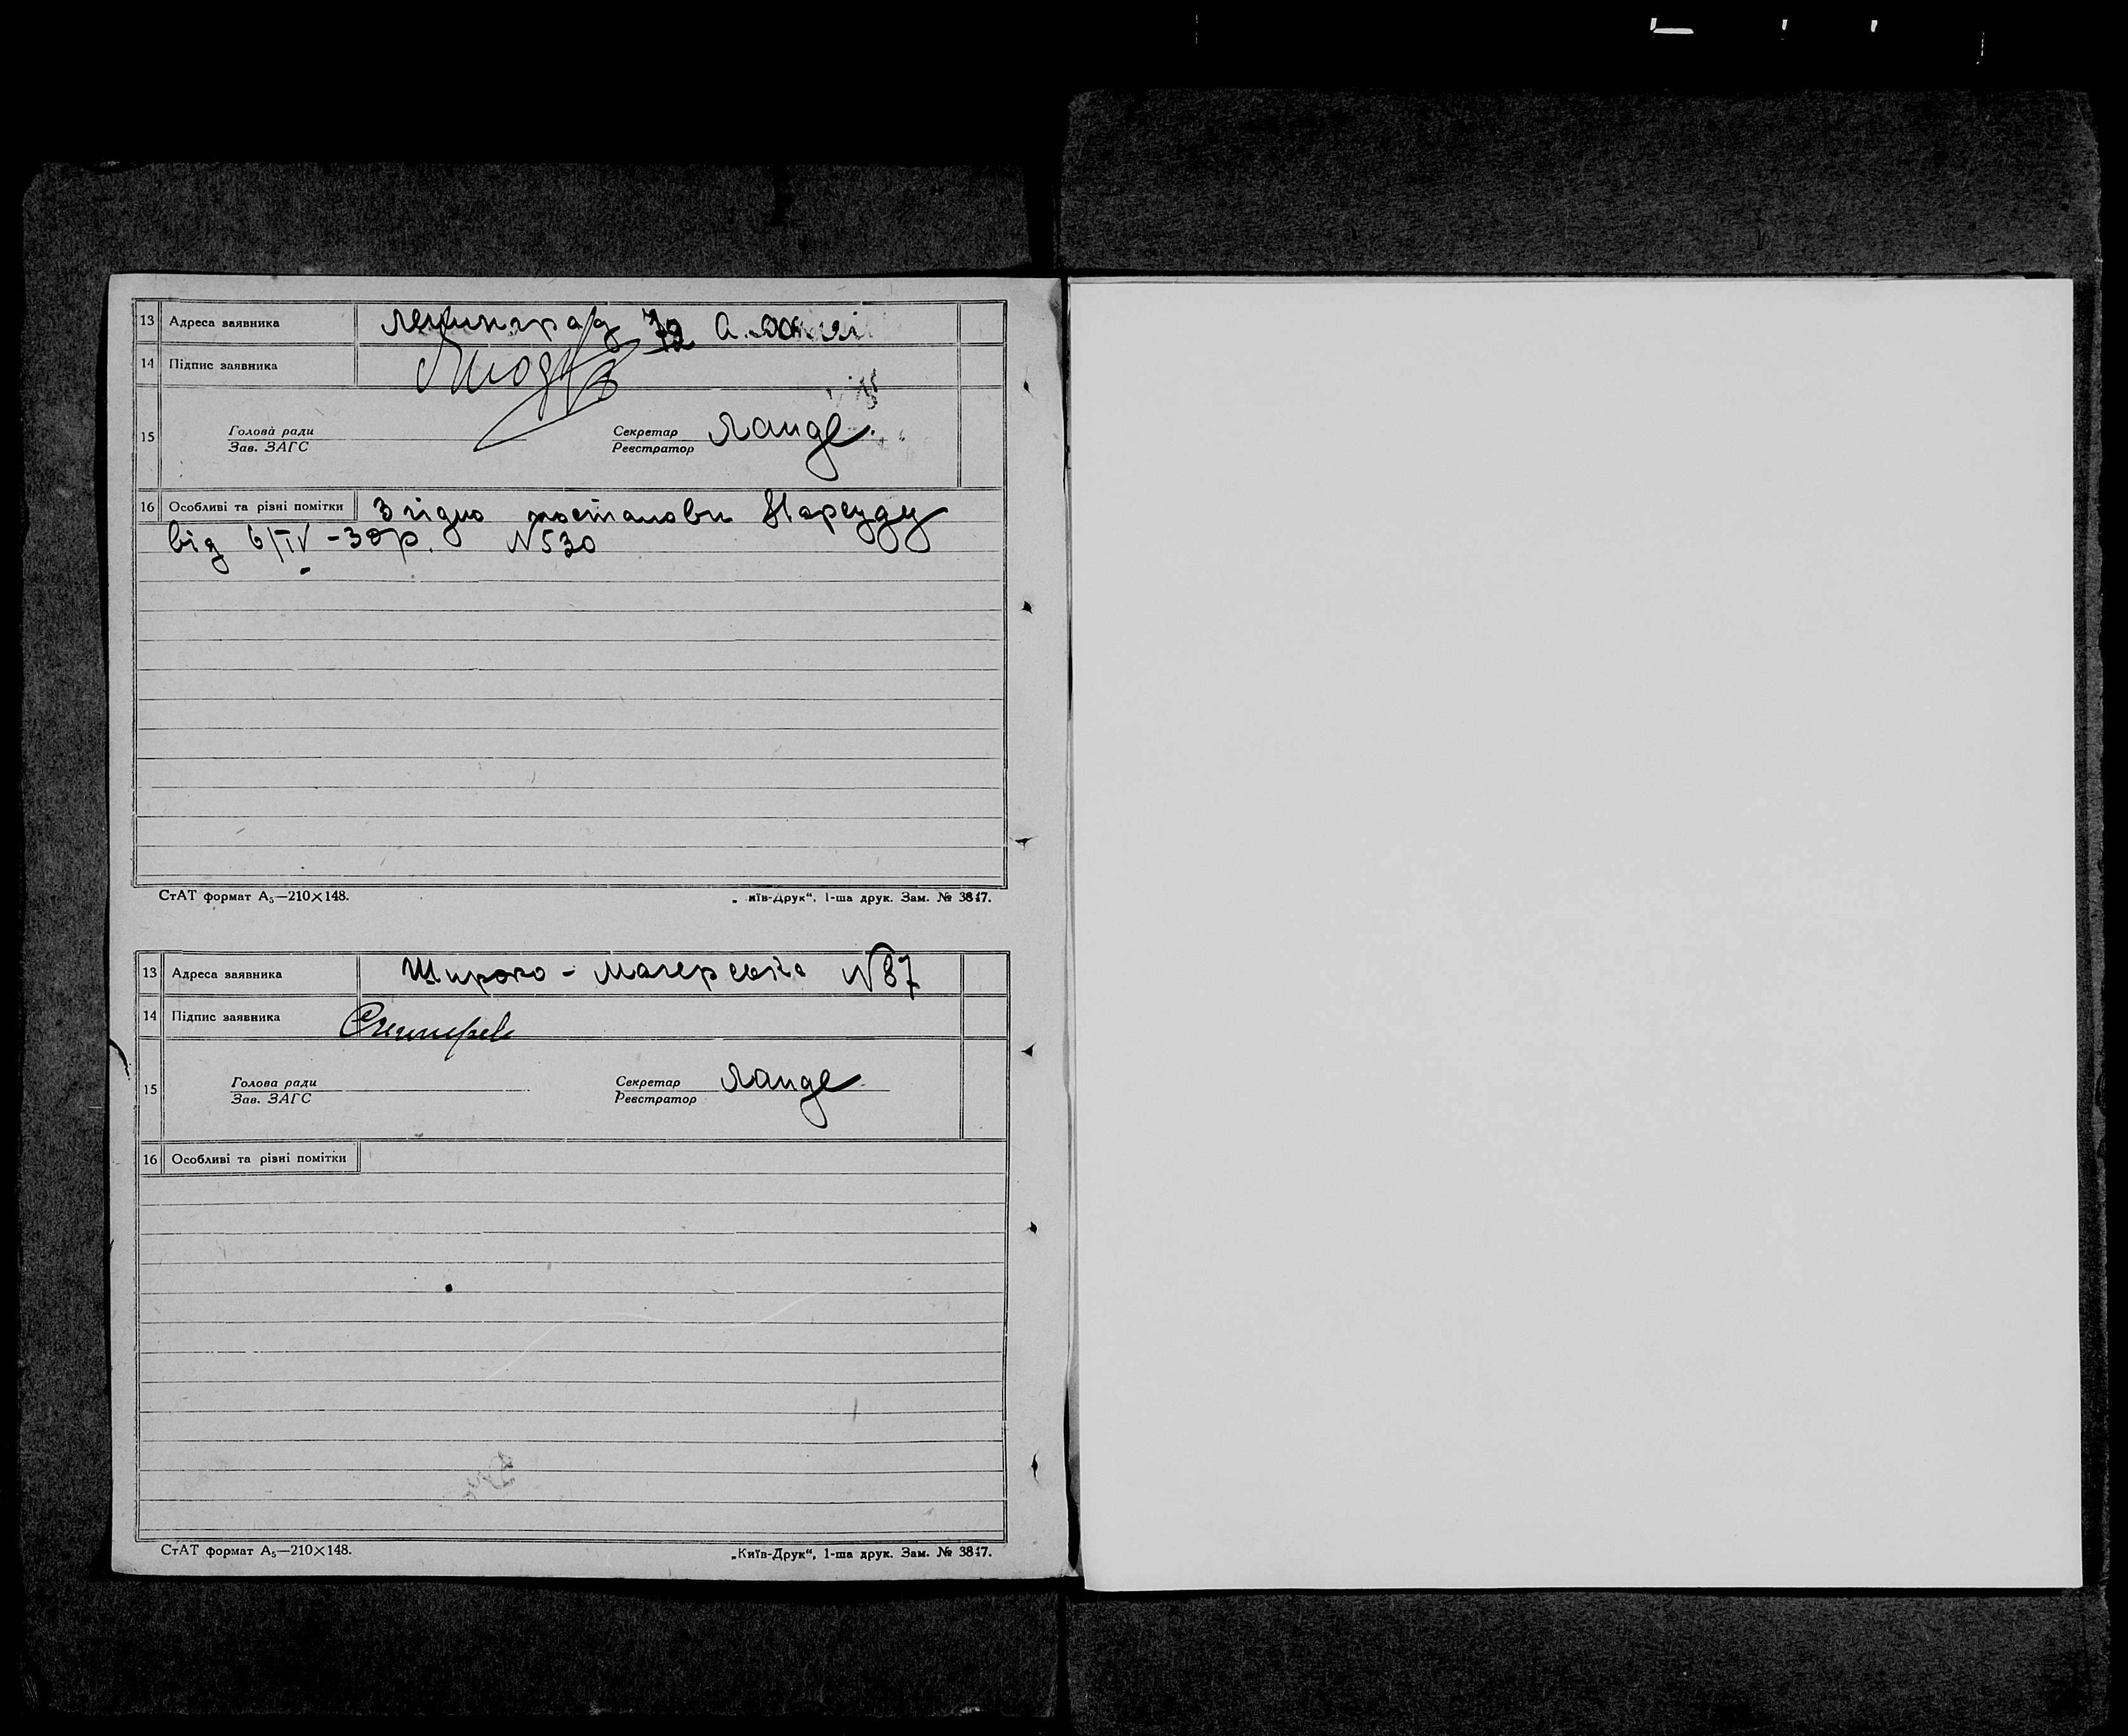 13 Адреса заявника Ленинград
14 Підпис заявника
15 Голова ради Зав. ЗАГС Секретар Реєстратор Ланде
16 Особливі та різні помітки Згідно постанови Нарсуду
від 6/IV-30р. N530
СтАТ формат А₅—210×148. „ иїв-Друк“, 1-ша друк. Зам. № 3847.
13 Адреса заявника Широко - N87
14 Підпис заявника
15 Голова ради Зав. ЗАГС Секретар Реєстратор Ланде
16 Особливі та різні помітки
СтАТ формат А₅—210×148. „Київ-Друк“, 1-ша друк. Зам. № 3847.